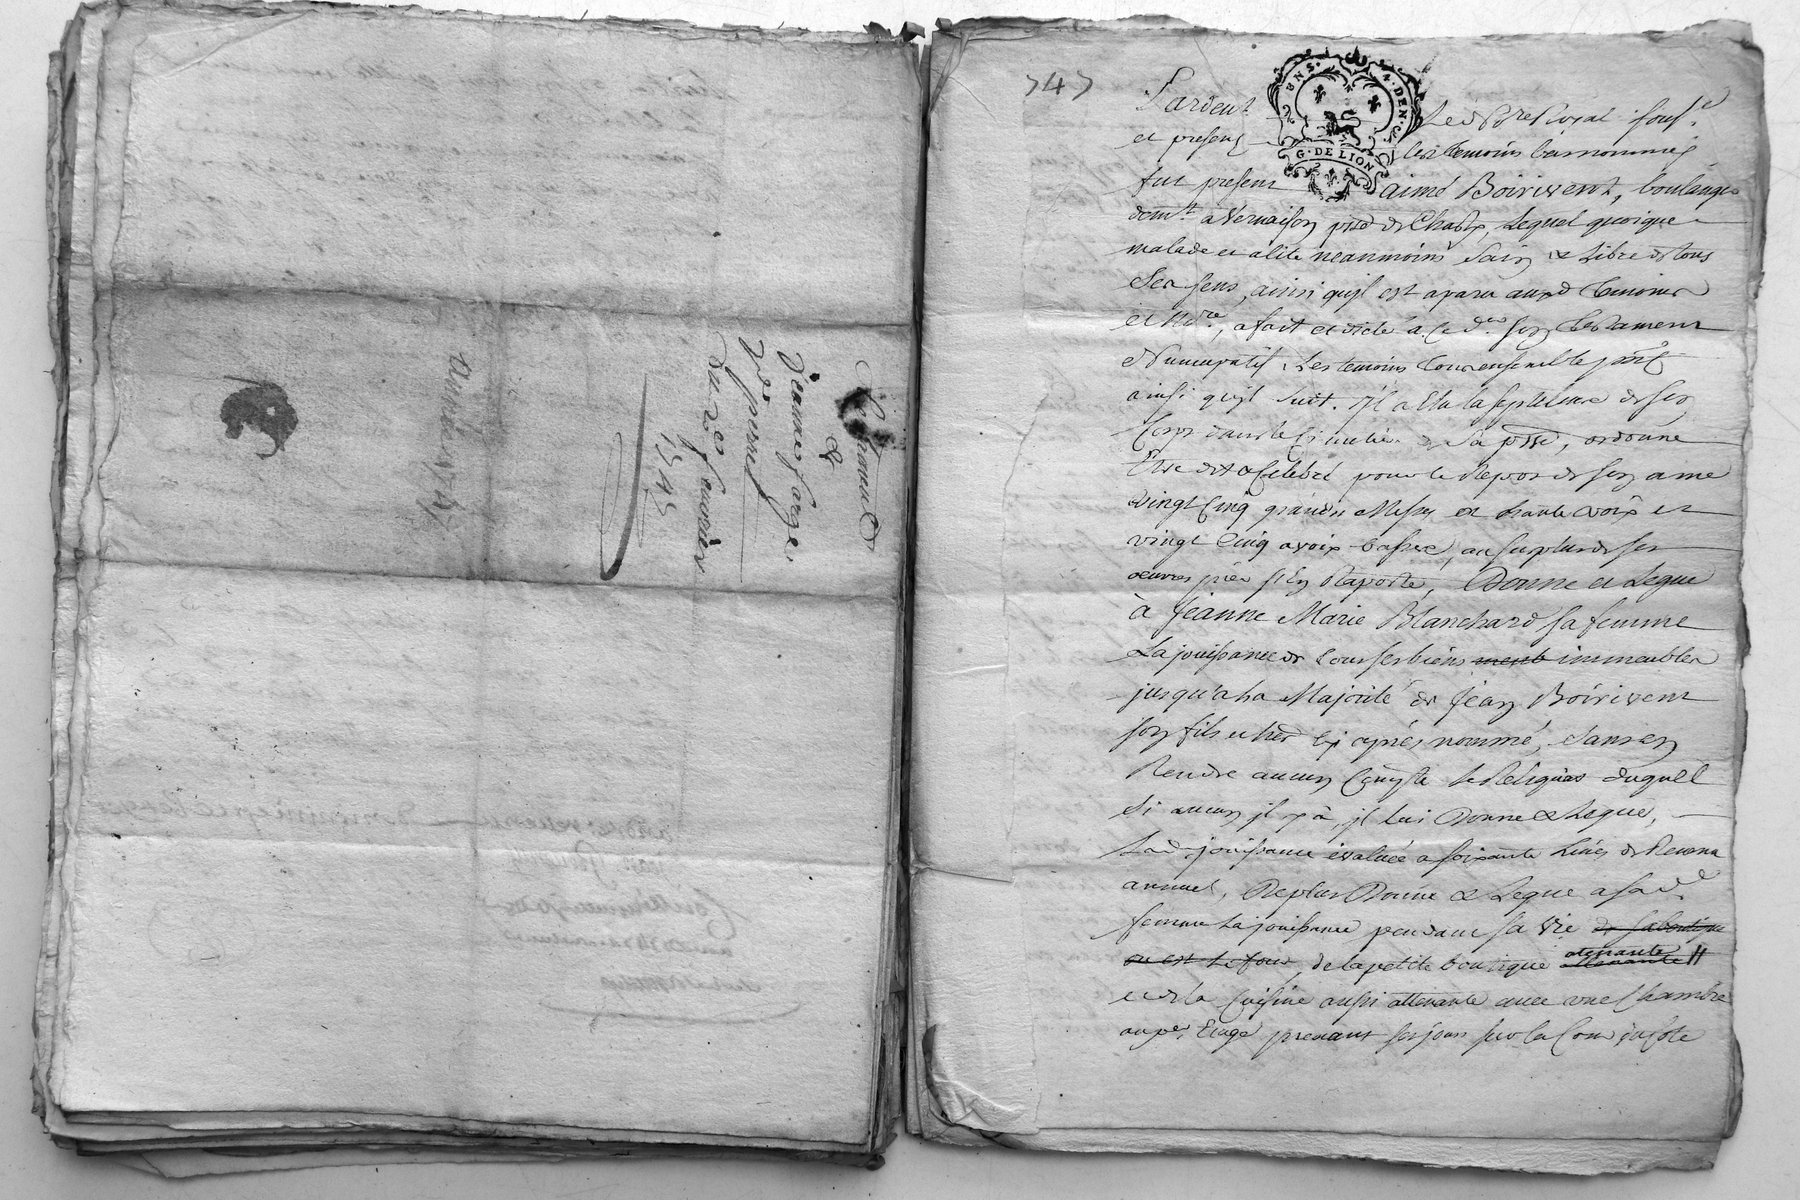 Testament
de
jeanne farge
du 2e feuvrier
1745
747
2 BNS. 4. DEN. C
G. DE LION
Pardevt Le Nre Royal sousé
et presens les temoins bas nommés
fut present aimé Boirivent, boulanger
demt a Vernaison psse de Charly, Lequel quoique
malade et alité neanmoins sain et Libre de tous
Ses sens, ainsi qu'jl est aparu auxd temoins
et Nore, a fait et dicté a Ce der son testament
Nuncupatif, Les temoins tous ensemble pnts
ainsi qu'jl suit. Jl a Elu la sepulture de son
Corps dans le Cimetiere de Sa psse, ordonne
Etre dit et Celebré pour le Repos de son ame
vingt Cinq grandes Messes et haute voix et
vingt Cinq a voix basse, au surplus de ses
oeuvres pies s'En Raporte, Donne et Legue
à Jeanne Marie Blanchard sa femme
La jouissance de tous ses biens meub immeubles
jusqu'a La Majorité de Jean Boirivent
son fils et her Ci après nommé, sans en
Rendre aucun Compte le Reliquas duquel
si aucun jl y à, jl Lui Donne et Legue,
Lad jouissance évaluée a soixante Livres de Revenu
annuel, Deplus Donne et Legue a sa de
femme La jouissance pendant sa vie de sa boutique
ou est Le four, de la petite boutique attenante
attenante
et de la Cuisine aussi attenante avec une Chambre
au per Etage prenant ses jours sur la Cour a côté